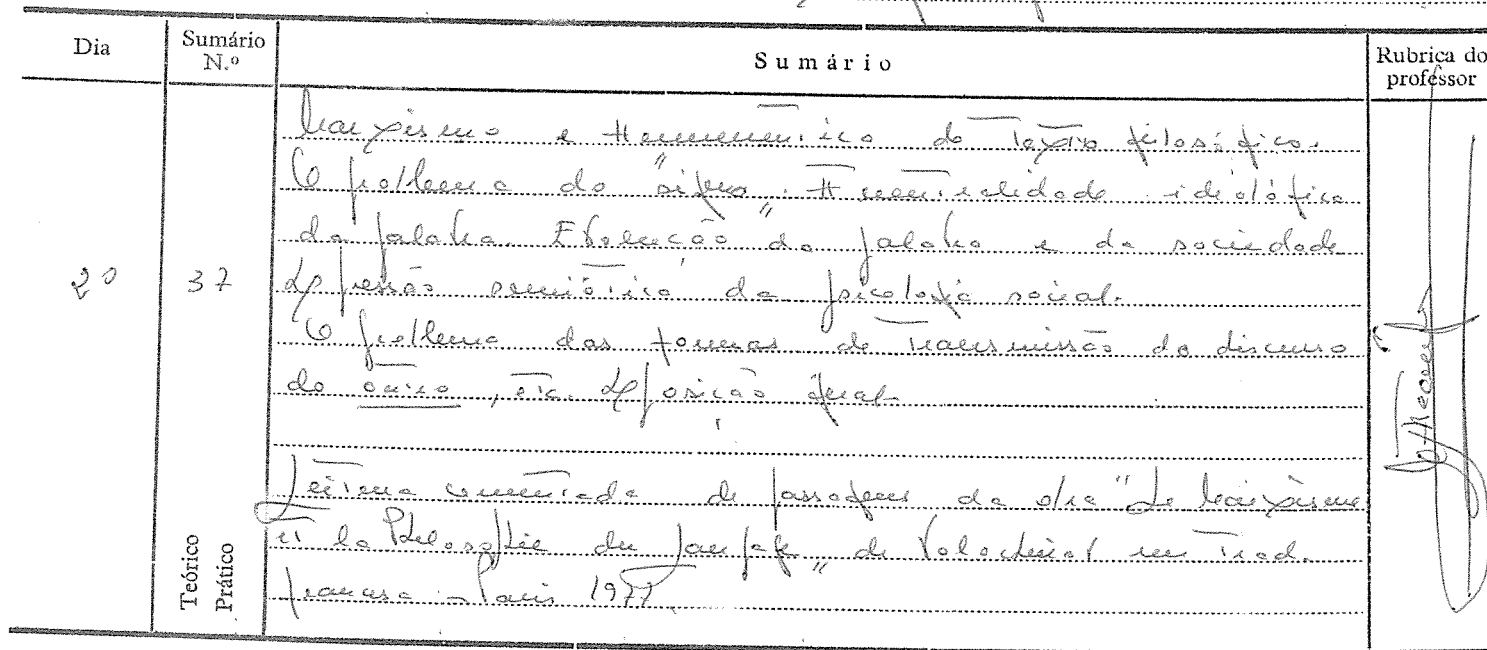 Dia
Sumário N.º
Sumário
Rubrica do professor
20
37
Teórico
Prático
Marxismo e Hermenêutica do Texto filosófico.
O problema do "signo". A neutralidade ideológica
da palavra. Evolução da palavra e da sociedade
Expressão semiótica da psicologia social.
O problema das formas de transmissão do discurso
do outro, etc. Exposição geral.
Leitura comentada de passagens da obra "Le Marxisme
et la Philosophie du langage" de Volochinov em trad.
francesa - Paris 1977